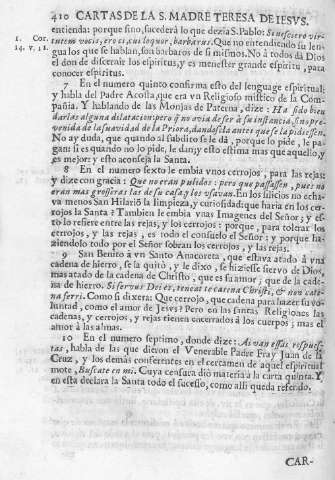 410 CARTAS DE LA S. MADRE TERESA DE IESVS.
entienda: porque sino, sucederá lo que dezia S. Pablo: Si nesciero vir-
1. Cor. tutem vocis, ero ei, cui loquor, barbarus. Que no entendiendo su len-
14. v. 11. gua los que se hablan, son barbaros de si mismos. No á todos dá Dios
el don de discernir espiritus, y es menester grande espiritu, para
conocer espiritus.
7 En el numero quinto confirma esto del lenguage espiritual:
y habla del Padre Acosta, que era vn Religioso mistico de la Com-
pañia. Y hablando de las Monjas de Patena, dize: Ha sido bien
darlas alguna dilatacion: porque
venida de la suavidad de la Priora, dandosela antes que se la pidiessen.
No ay duda, que quando al subdito se le dá, porque lo pide, le pa-
gan: si es quando no lo pide, le dan; y esto estima mas que aquello, y
es mejor: y esto aconseja la Santa.
8 En el numero sexto le embia vnos cerrojos, para las rejas;
y dize con gracia: Que no eran pulidos: pero que passassen, pues no
eran mas grosseras las de su casa, y las vsavan. En los silicios no echa-
va menos San Hilariõ la limpieza, y curiosidad: que haria en los cer-
rojos la Santa? Tambien le embia vnas Imagenes del Señor; y es-
to lo refiere entre las rejas, y los cerrojos: porque, para tolerar los
cerrojos, y las rejas, es todo el consuelo el Señor: y porque ha-
ziendolo todo por el Señor sobran los cerrojos, y las rejas.
9 San Benito á vn Santo Anacoreta, que estava atado á vna
cadena de hierro, se la quitò, y le dixo, se hiziesse siervo de Dios,
mas atado de la cadena de Christo, que es su amor; que de la cade-
na de hierro. Si servus Dei es, teneat te catena Christi, & non cate-
na ferri. Como si dixera: Que cerrojo, que cadena para hazer su vo-
luntad, como el amor de Jesvs? Pero en las santas Religiones las
cadenas, y cerrojos, y rejas tienen encerrados á los cuerpos; mas el
amor á las almas.
10 En el numero septimo, donde dize: Ai van essas respues-
tas, habla de las que dieron el Venerable Padre Fray Juan de la
Cruz, y los demás conferentes en el certamen de aquel espiritual
mote, Buscate en mi. Cuya censura diò materia á la carta quinta. Y
en esta declara la Santa todo el sucesso, como alli queda referido.
CAR-